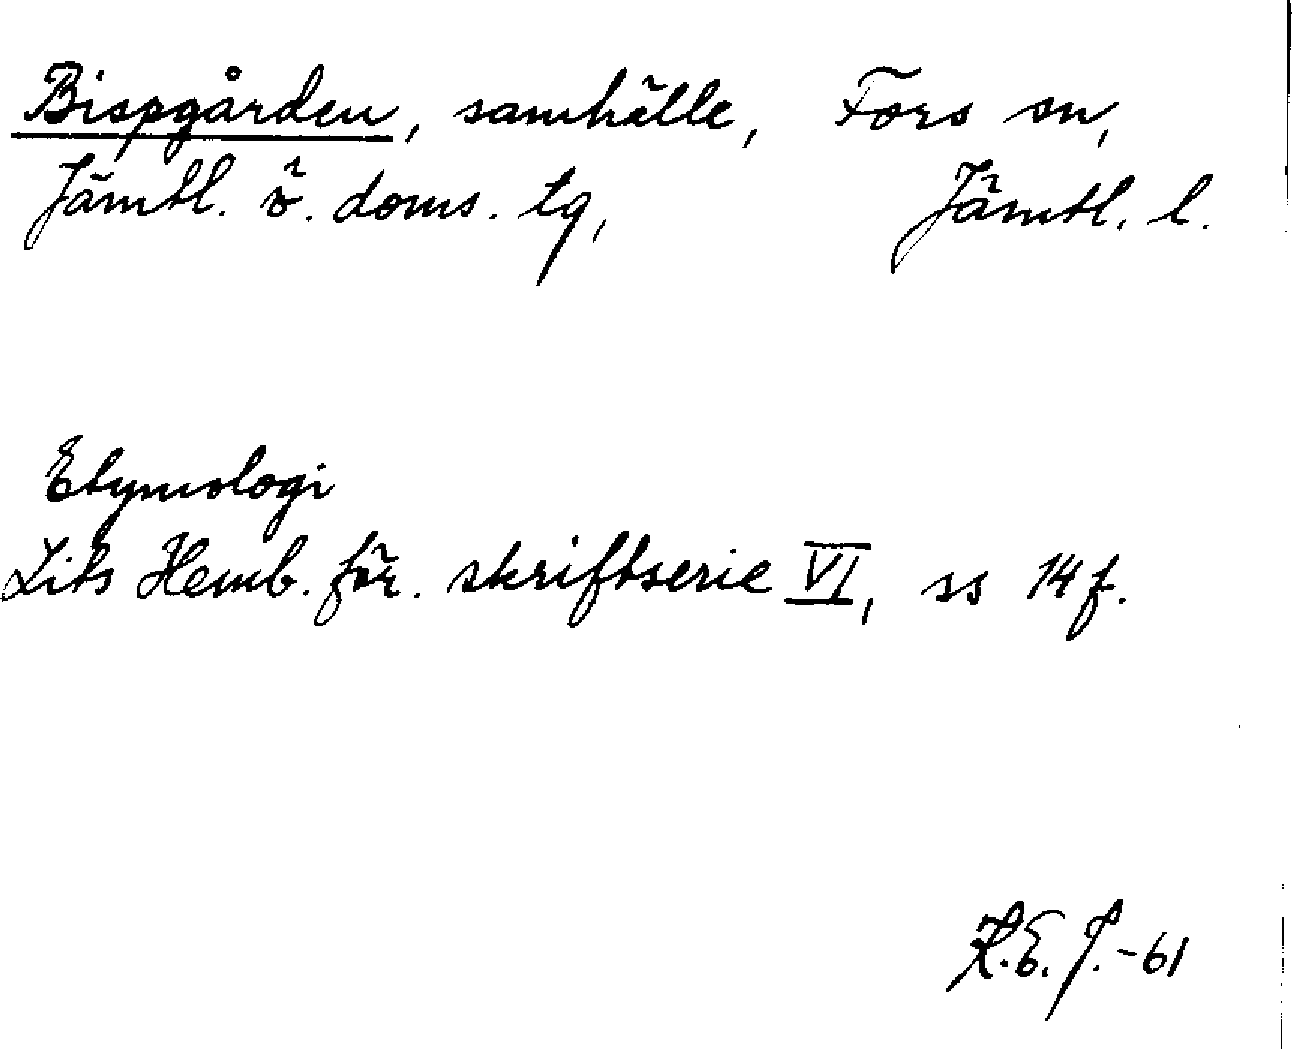 Bispgården, samhälle, Fors sn,
Jämtl. ö. doms. tg, Jämtl. l.
Etymologi
Lits Hemb. för. skriftserie VI, ss 14 f.
K.E.J. -61